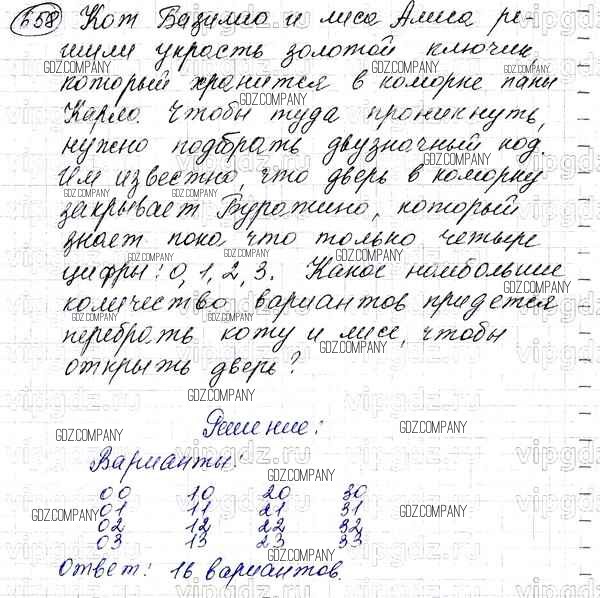 658 Кот Базилио и лиса Алиса ре-
шили украсть золотой ключик,
который хранится в каморке папы
Карло. Чтобы туда проникнуть,
нужно подобрать двузначный код.
Им известно, что дверь в каморку
закрывает Буратино, который
знает пока, что только четыре
цифры: 0, 1, 2, 3. Какое наибольшее
количество вариантов придется
перебрать коту и лисе, чтобы
открыть дверь?
Решение:
Варианты:
00 10 20 30
01 11 21 31
02 12 22 32
03 13 23 33
Ответ: 16 вариантов.